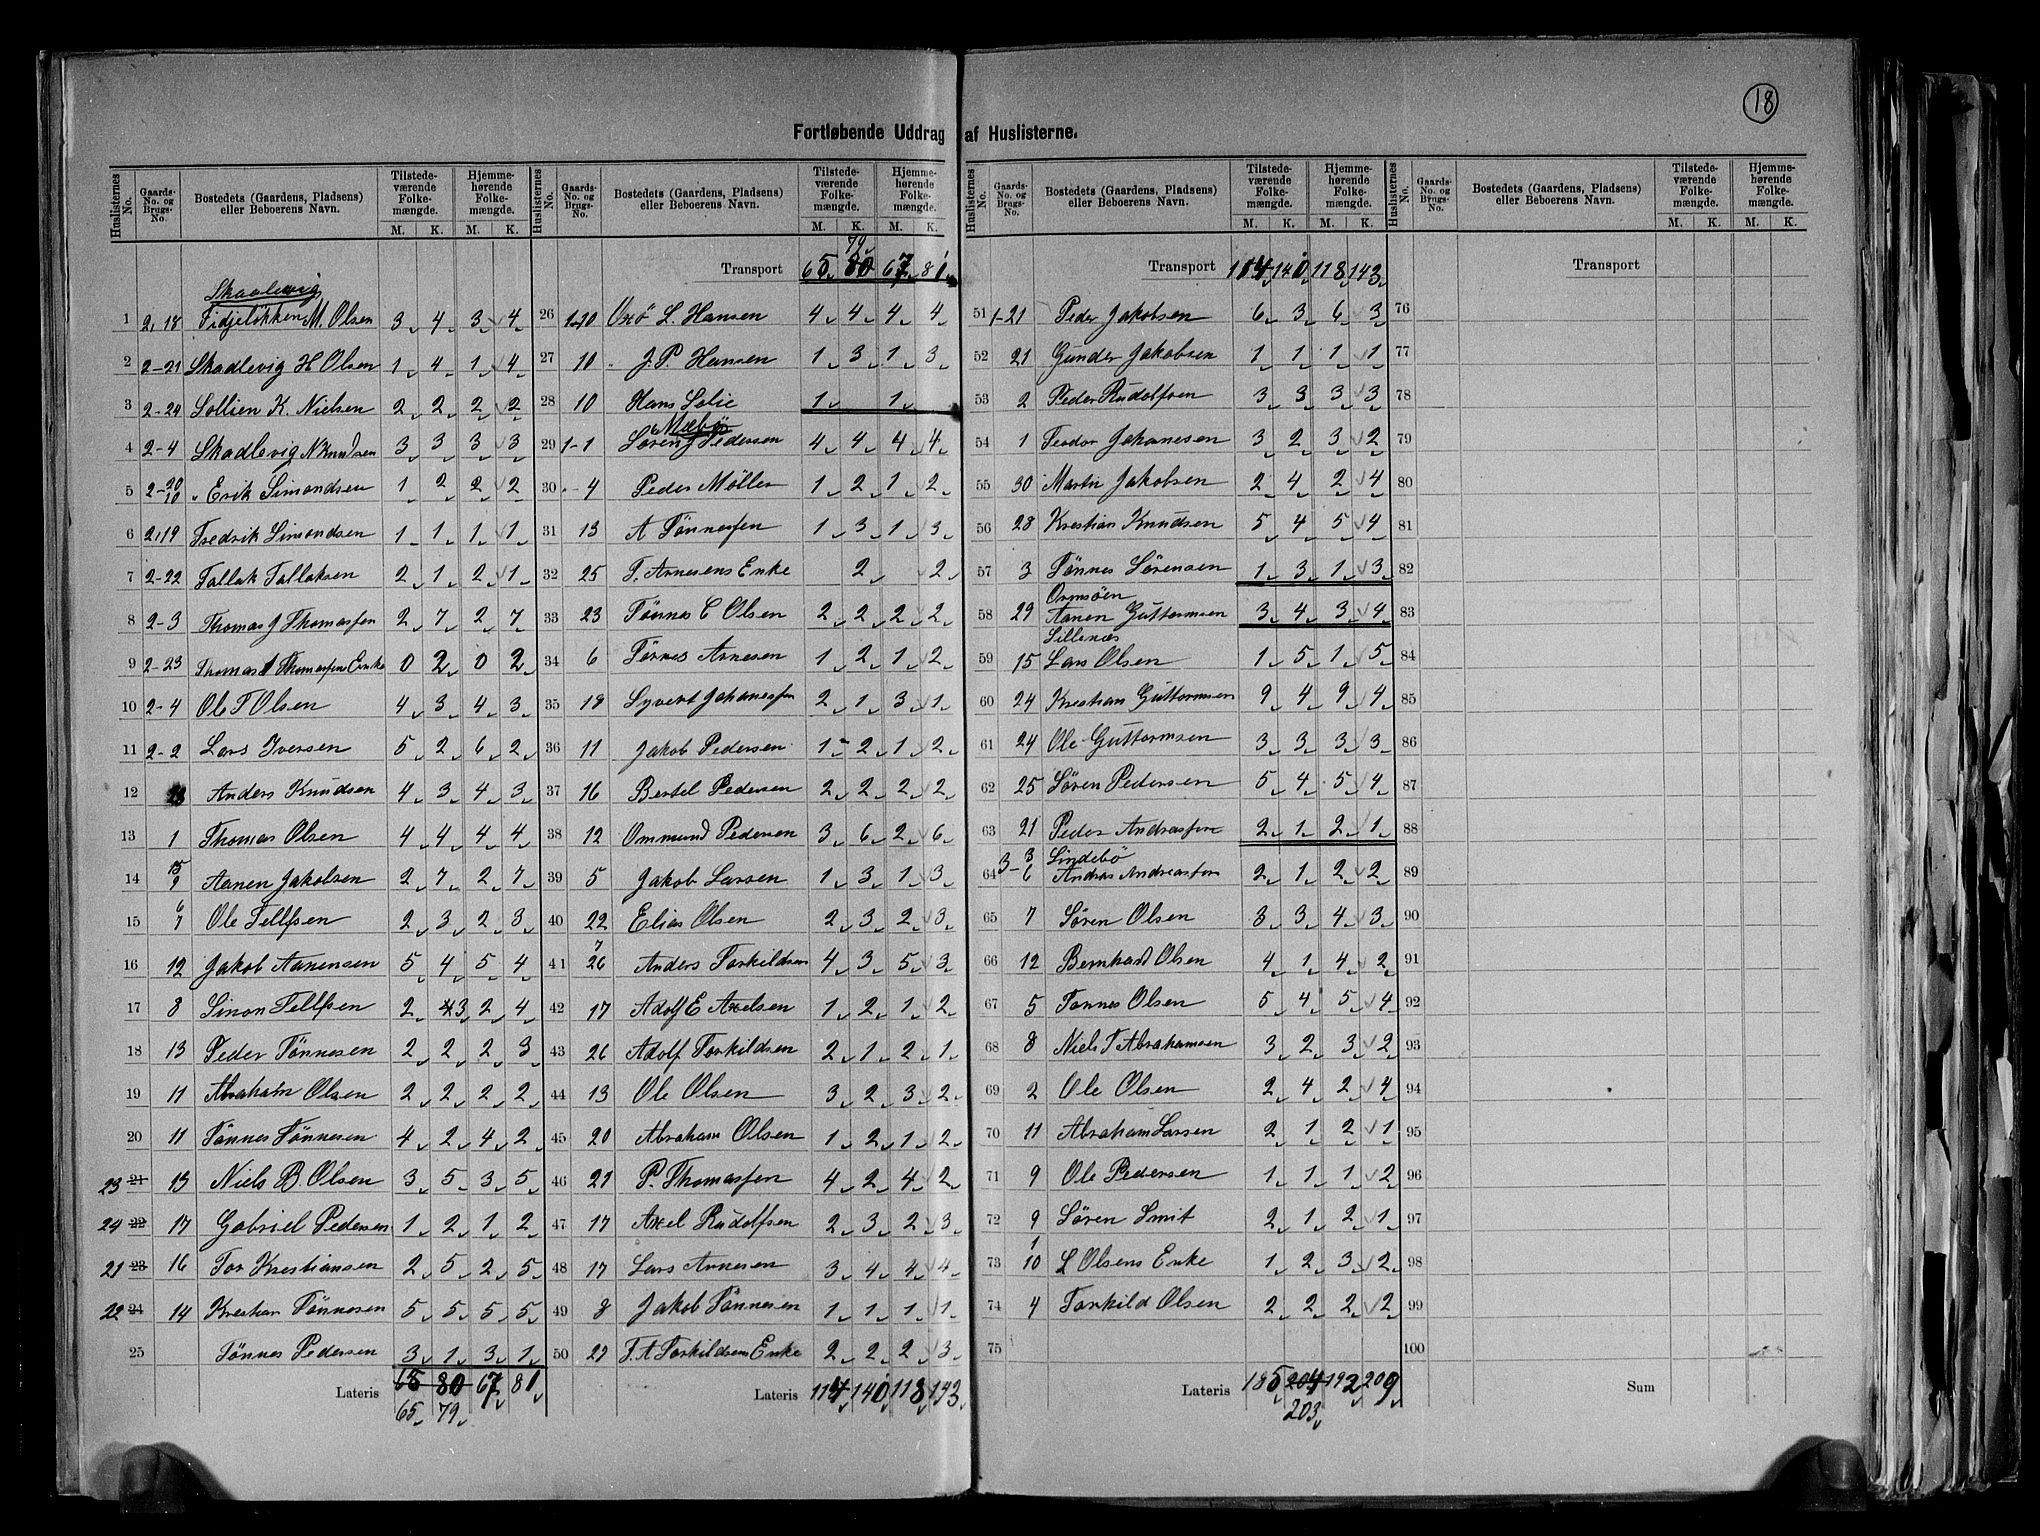 18
Fortløbende Uddrag af Huslisterne.
Huslisternes No. | Gaards-No. og Brugs-No. | Bostedets (Gaardens, Pladsens) eller Beboerens Navn. | Tilstedeværende Folkemængde. M. K. | Hjemmehørende Folkemængde. M. K.
Skaalevig
1 2,18 Fidjeløkken M. Olsen 3 4 3 4
2 2-21 Skadlevig H Olsen 1 4 1 4
3 2-24 Sollien K. Nielsen 2 2 2 2
4 2-4 Skadlevig N Knudsen 3 3 3 3
5 2-20 10 " Erik Simondsen 1 2 2 2
6 2,19 Fredrik Simondsen 1 1 1 1
7 2-22 Tallak Tallaksen 2 1 2 1
8 2-3 Thomas J Thomassen 2 7 2 7
9 2-23 Thomas Thomassens Enke 0 2 0 2
10 2-4 Ole T Olsen 4 3 4 3
11 2-2 Lars Iversen 5 2 6 2
12 Anders Knudsen 4 3 4 3
13 1 Thomas Olsen 4 4 4 4
14 15 9 Aanen Jakobsen 2 7 2 7
15 6 7 Ole Tellfsen 2 3 2 3
16 12 Jakob Aanensen 5 4 5 4
17 8 Simon Tellfsen 2 3 2 4
18 13 Peder Tönnesen 2 2 2 3
19 11 Abraham Olsen 2 2 2 2
20 11 Tönnes Tönnesen 4 2 4 2
23 21 13 Niels B. Olsen 3 5 3 5
24 22 17 Gabriel Pedersen 1 2 1 2
21 23 16 Tor Krestiansen 2 5 2 5
22 24 14 Krestian Tönnesen 5 5 5 5
25 Tönnes Pedersen 3 1 3 1
Lateris 65 80 67 81
65 79
Huslisternes No. | Gaards-No. og Brugs-No. | Bostedets (Gaardens, Pladsens) eller Beboerens Navn. | Tilstedeværende Folkemængde. M. K. | Hjemmehørende Folkemængde. M. K.
79
Transport 65 80 67 81
26 1-10 Uxö L. Hansen 4 4 4 4
27 10 " J. P. Hansen 1 3 1 3
28 10 Hans Solie 1 1
Mæbö
29 1-1 Sören J Pedersen 4 4 4 4
30 4 Peder Möller 1 2 1 2
31 13 A Tönnessen 1 3 1 3
32 25 T. Arnesens Enke 2 2
33 23 Tönnes C Olsen 2 2 2 2
34 6 Tönnes Arnesen 1 2 1 2
35 18 Syvert Johanessen 2 1 3 1
36 11 Jakob Pedersen 1 2 1 2
37 16 Bertel Pedersen 2 2 2 2
38 12 Ommund Pedersen 3 6 2 6
39 5 Jakob Larsen 1 3 1 3
40 22 Elias Olsen 2 3 2 3
41 7 26 Anders Torkildsen 4 3 5 3
42 17 Adolf E Axelsen 1 2 1 2
43 26 Adolf Torkildsen 2 1 2 1
44 13 Ole Olsen 3 2 3 2
45 20 Abraham Olsen 1 2 1 2
46 27 P. Thomassen 4 2 4 2
47 17 Axel Rudolfsen 2 3 2 3
48 17 Lars Arnesen 3 4 4 4
49 8 Jakob Tönnesen 1 1 1 1
50 27 T. A Torkildsens Enke 2 2 2 3
Lateris 114 140 118 143
Huslisternes No. | Gaards-No. og Brugs-No. | Bostedets (Gaardens, Pladsens) eller Beboerens Navn. | Tilstedeværende Folkemængde. M. K. | Hjemmehørende Folkemængde. M. K.
Transport 114 140 118 143
51 1-21 Peder Jakobsen 6 3 6 3
52 21 Gunder Jakobsen 1 1 1 1
53 2 Peder Rudolfsen 3 3 3 3
54 1 Teodor Johanesen 3 2 3 2
55 30 Martn Jakobsen 2 4 2 4
56 28 Krestian Knudsen 5 4 5 4
57 3 Tönnes Sörensen 1 3 1 3
Ormsöen
58 29 Aanen Guttormsen 3 4 3 4
Sillenæs
59 15 Lars Olsen 1 5 1 5
60 24 Krestian Guttormsen 9 4 9 4
61 24 Ole Guttormsen 3 3 3 3
62 25 Sören Pedersen 5 4 5 4
63 21 Peder Andreassen 2 1 2 1
Lindebö
64 3-3 6 Andras Andreassen 2 1 2 2
65 7 Sören Olsen 3 3 4 3
66 12 Bernhard Olsen 4 1 4 2
67 5 Tönnes Olsen 5 4 5 4
68 8 Niels T Abrahamsen 3 2 3 2
69 2 Ole Olsen 2 4 2 4
70 11 Abraham Larsen 2 1 2 1
71 9 Ole Pedersen 1 1 1 2
72 9 Sören Smit 2 1 2 1
73 1 10 L Olsens Enke 1 2 3 2
74 4 Torkild Olsen 2 2 2 2
75
Lateris 185 204 192 209
203
Huslisternes No. | Gaards-No. og Brugs-No. | Bostedets (Gaardens, Pladsens) eller Beboerens Navn. | Tilstedeværende Folkemængde. M. K. | Hjemmehørende Folkemængde. M. K.
Transport
76
77
78
79
80
81
82
83
84
85
86
87
88
89
90
91
92
93
94
95
96
97
98
99
100
Sum